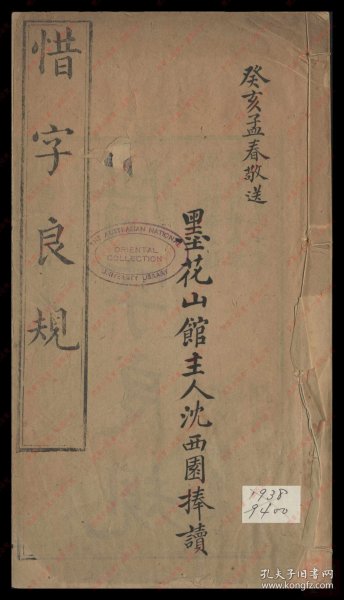 癸亥孟春敬送
墨花山館主人沈西園捧讀
惜字良規
THE AUSTRALIAN NATIONAL
ORIENTAL
COLLECTION
UNIVERSITY LIBRARY
1938
9400
孔夫子旧书网
www.kongfz.com